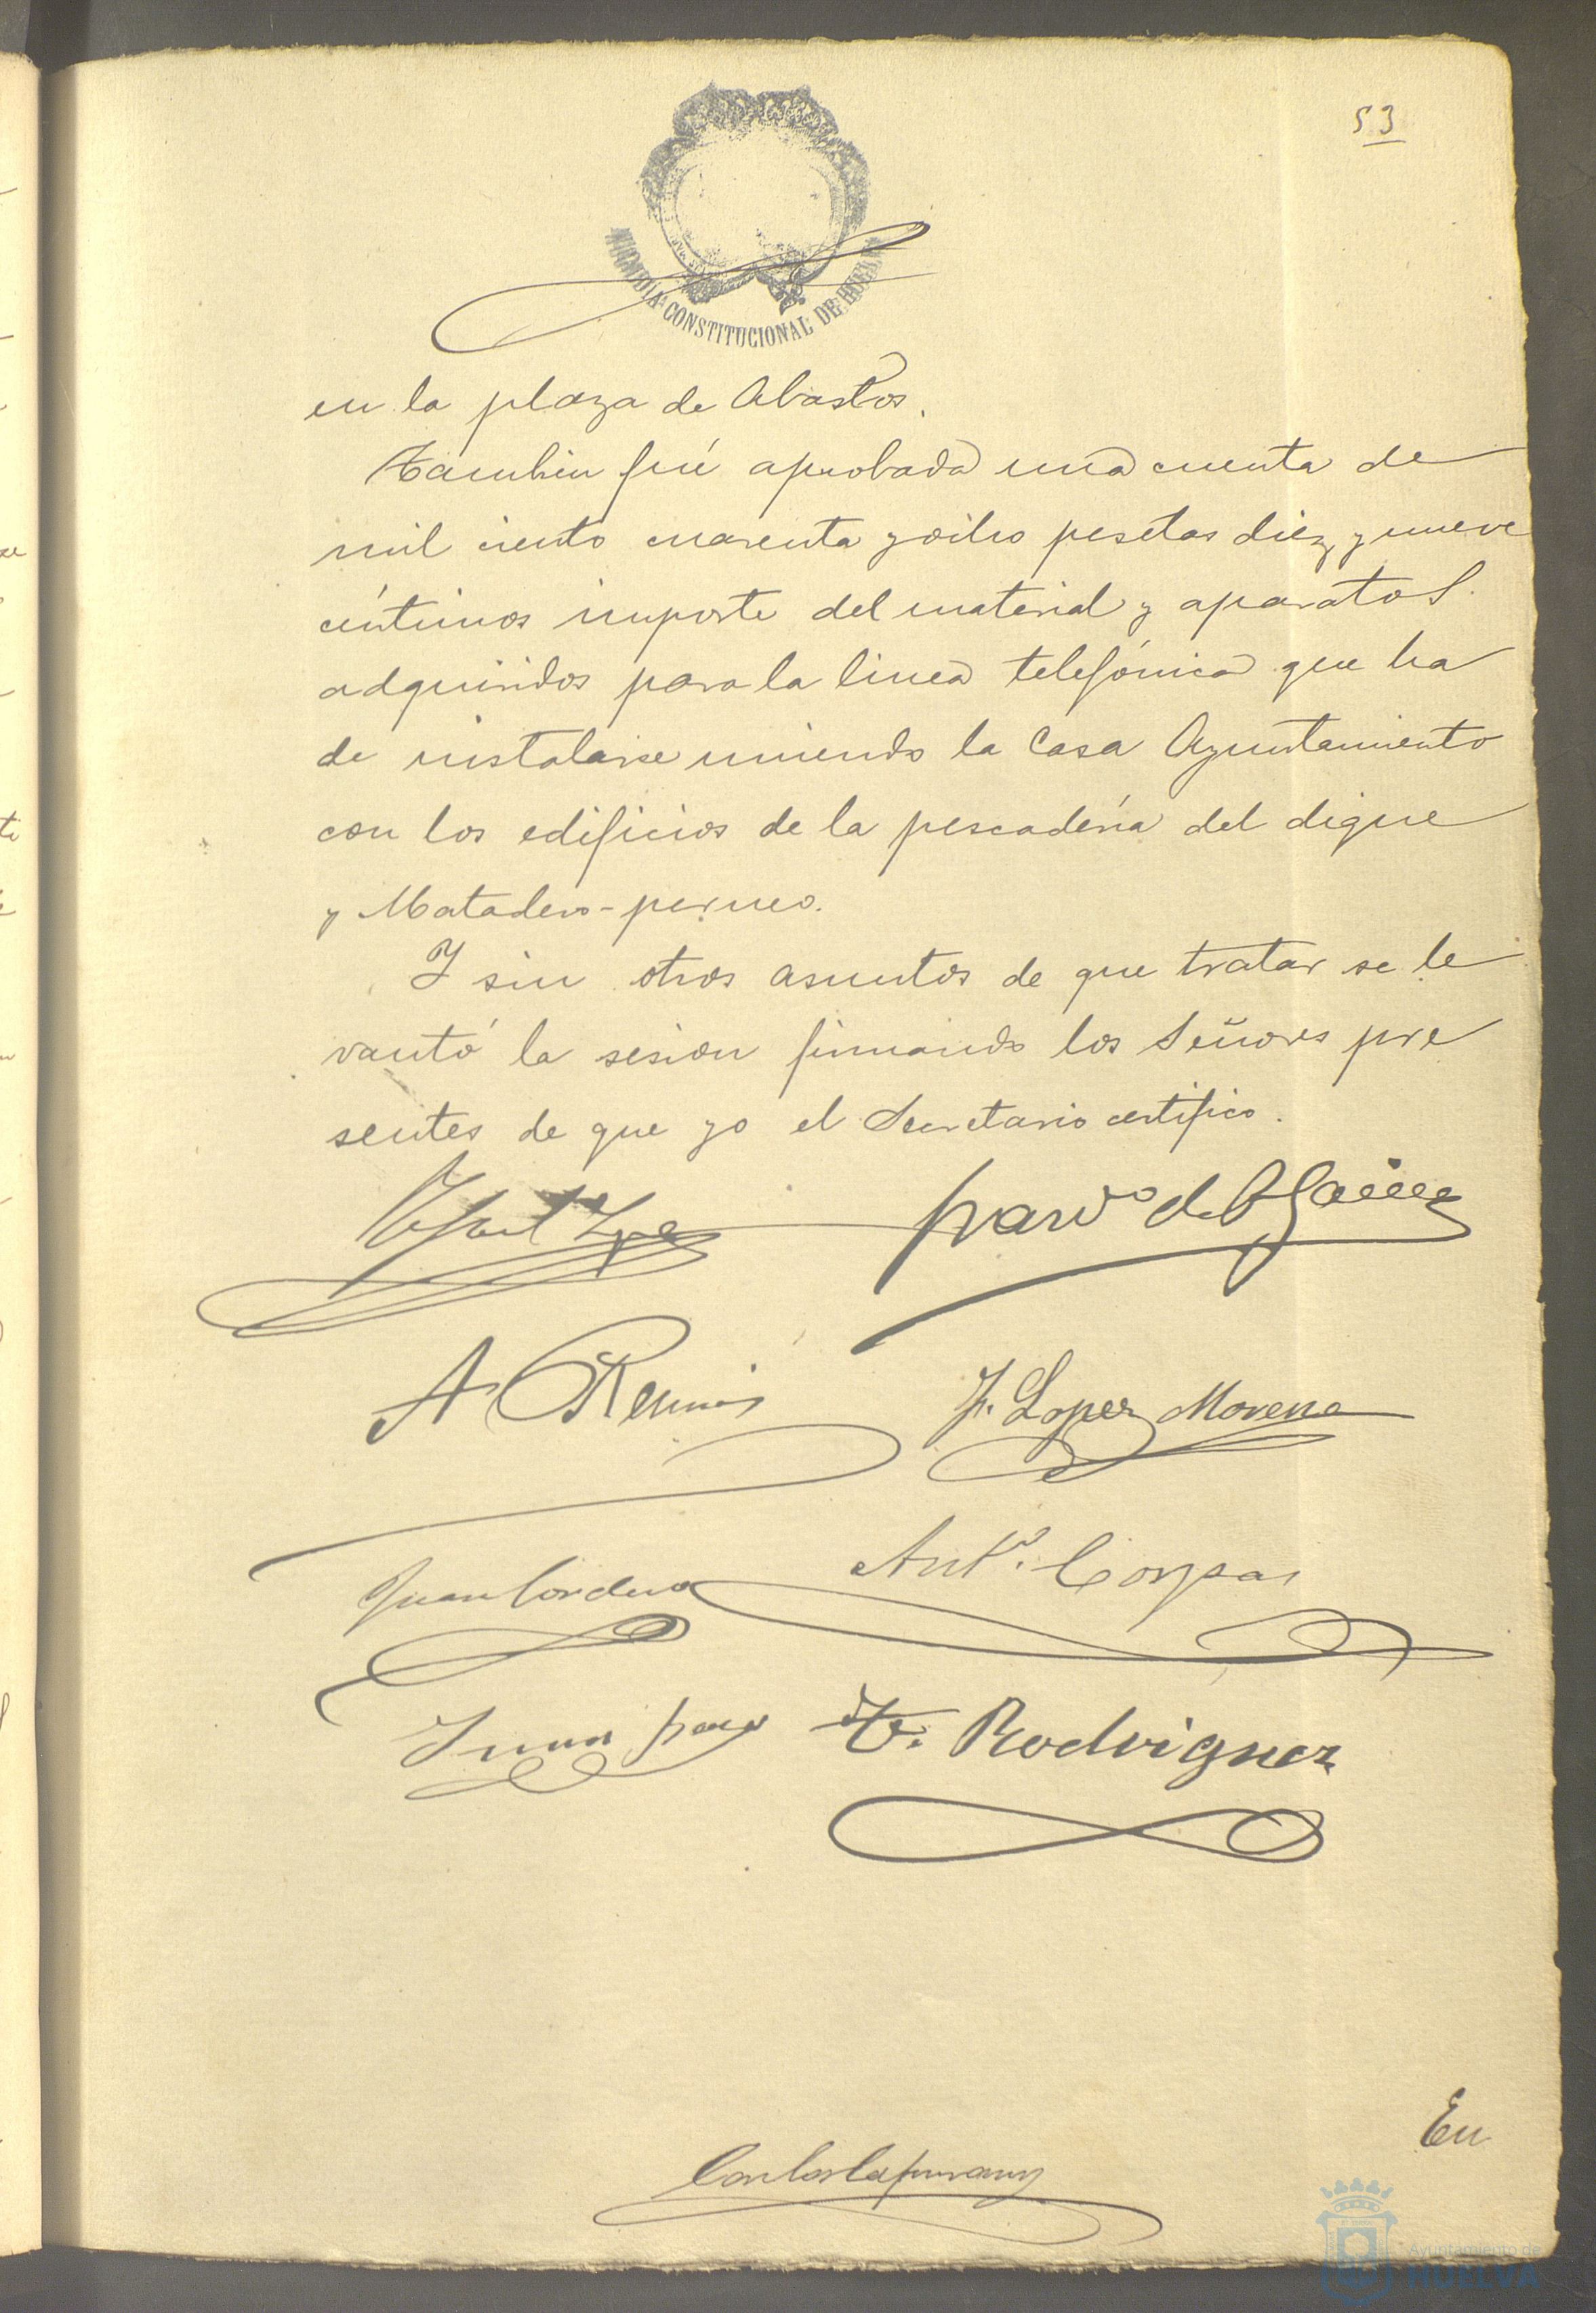 53
ALCALDIA CONSTITUCIONAL DE HUELVA
en la plaza de Abastos.
Tambien fué aprobada una cuenta de
mil ciento cuarenta y ocho pesetas diez y nueve
céntimos importe del material y aparatos
adquiridos para la linea telefónica que ha
de instalarse uniendo la Casa Ayuntamiento
con los edificios de la pescadería del dique
y Matadero-perneo.
Y sin otros asuntos de que tratar se le
vantó la sesion firmando los Señores pre
sentes de que yo el Secretario certifico.
A.
F. Lopez Moreno
Juan Cordero
Ant.º Corpas
F. Rodriguez
En
Ayuntamiento de
HUELVA